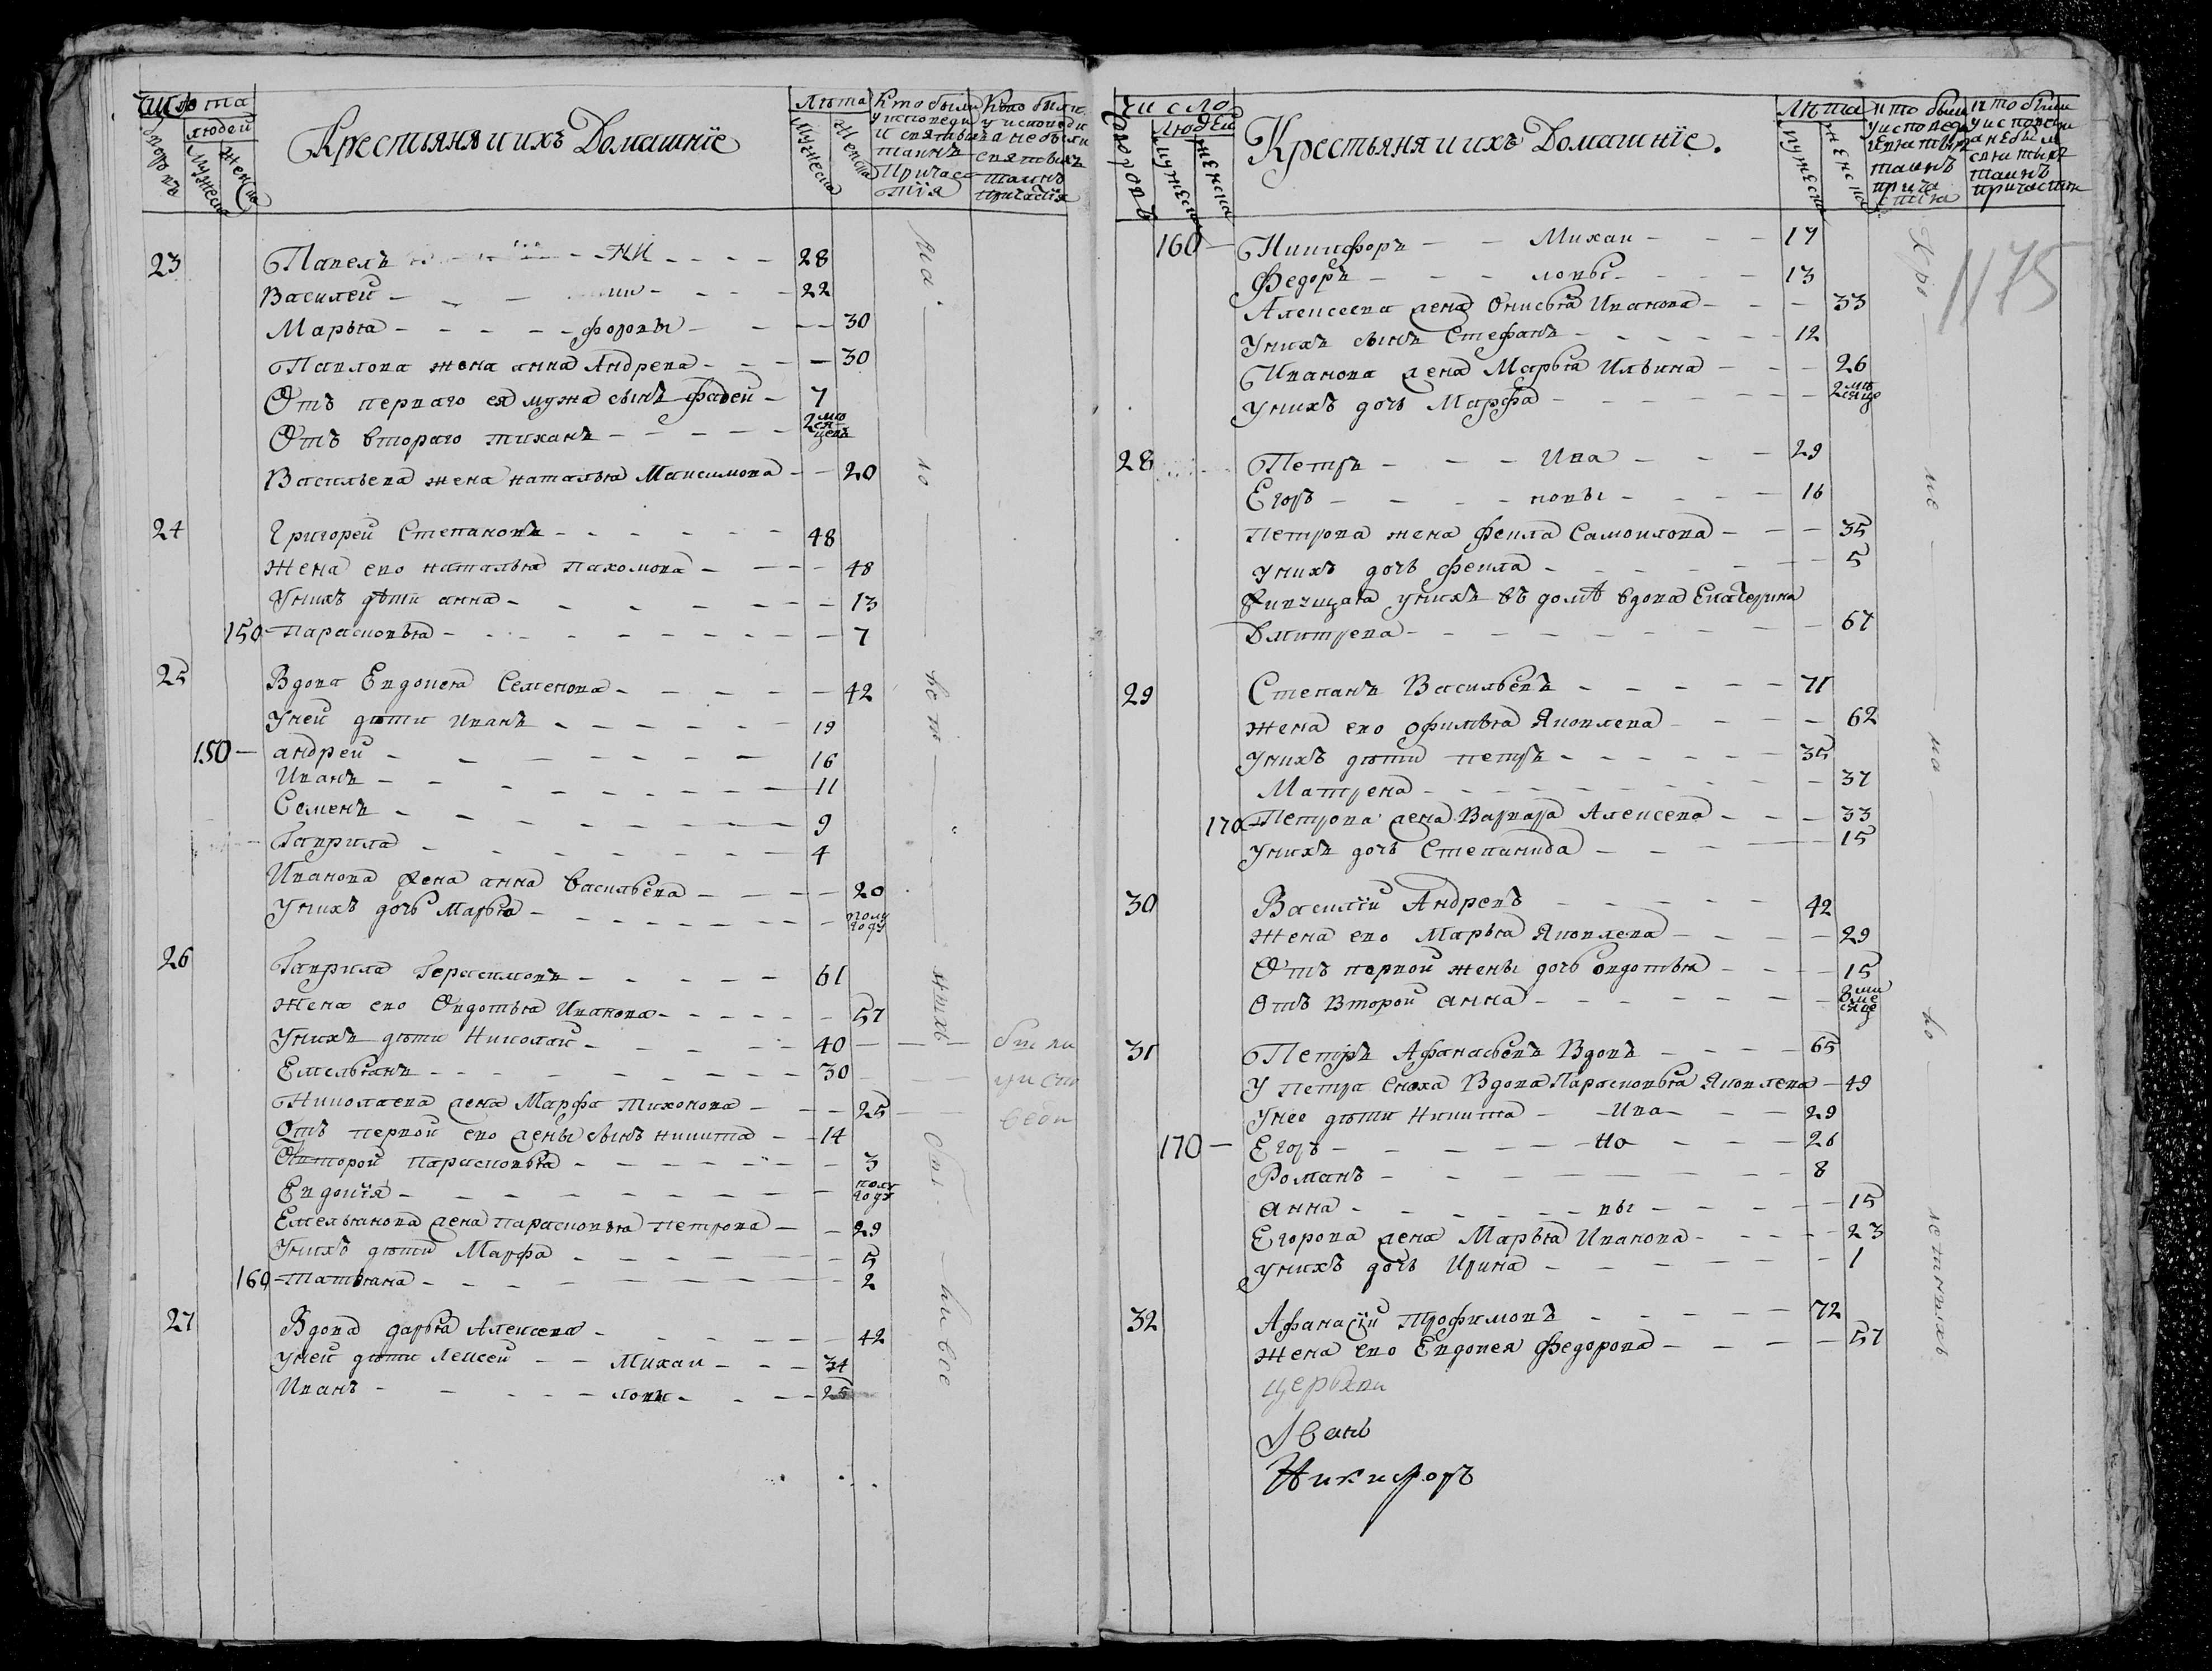 Число
людей
дворовъ
мужеска
женска
Крестьяня и ихъ Домашнїе
Лѣта
мужеска
женска
Кто были
у исповеди
и святыхъ
таинъ
Причас
тїя
Кто были
у исповеди
а не были
святыхъ
таинъ
причастїя
23 Павелъ - ни - 28
Василей - - - 22
Марья - - - - - форовы - - - 30
Павлова жена анна Андрева - - - 30
Отъ перваго ея мужа сынъ фадей - 7
Отъ втораго тиханъ - - - - - 2 ме сяцевъ
Васильева жена наталья Максимова - - 20
24 Григорей Степановъ - - - - - 48
Жена ево наталья пахомова - - - - 48
Унихъ дѣти анна - - - - - - 13
150 - парасковья - - - - - - - - 7
25 Вдова Евдокея Семенова - - - - - 42
Уней дѣти Иванъ - - - - - - 19
150 - андрей - - - - - - - 16
Иванъ - - - - - - - - 11
Семенъ - - - - - - - - 9
Гаврила - - - - - - - 4
Иванова жена анна Васильева - - - - 20
Унихъ дочь Марья - - - - - - - полу году
26 Гаврила Герасимовъ - - - - - 61
Жена ево Овдотья Иванова - - - - - 57
Унихъ дѣти Николай - - - - - 40 - - -
Емельянъ - - - - - - - - 30 - - -
Николаева жена Марфа Тихонова - - - 25 - -
Отъ первой ево жены сынъ никита - - 14
Отвторой парасковья - - - - - - 3
Евдокїя - - - - - - - - полу году
Емельянова жена парасковья петрова - - 29
Унихъ дѣти Марфа - - - - - - 5
160 - татьяна - - - - - - - - 2
27 Вдова дарья Алексева - - - - - - 42
уней дѣти Алексей - - Михаи - - - 34
Иванъ - - - - - ловы - - - 25
Число
людей
дворовъ
мужеска
женска
Крестьяня и ихъ Домашнїе.
Лѣта
мужеска
женска
кто были
у исповеди
и святыхъ
таинъ
прича
стия
кто были
у исповеди
а не были
святыхъ
таинъ
причастия
1175
160 - Никифоръ - - Михаи - - - 17
Федоръ - - - ловы - - - 13
Алексеева жена Онисья Иванова - - - 33
Унихъ сынъ Стефанъ - - - - - 12
Иванова жена Марья Ильина - - - 26
Унихъ дочь Марфа - - - - - - - 2 ме сяца
28 Петръ - - - Ива - - - 29
Егоръ - - - - новы - - - - 16
Петрова жена фекла Самоилова - - - 35
унихъ дочь фекла - - - - - - - 5
живущая унихъ въ домѣ вдова Екатерина
Дмитрева - - - - - - - - - 67
29 Степанъ Васильевъ - - - - - 71
жена ево Офимья Яковлева - - - - 62
Унихъ дѣти петръ - - - - - - 35
Матрена - - - - - - - - 37
170 - Петрова жена Варвара Алексева - - - 33
Унихъ дочь Степанида - - - - - 15
30 Василїй Андревъ - - - - - 42
Жена ево Марья Яковлева - - - - - 29
Отъ первой жены дочь овдотья - - - - 15
Отъ Второй анна - - - - - - -
31 Петръ Афанасьевъ Вдовъ - - - - 65
У петра сноха Вдова Парасковья Яковлева - 49
Унее дѣти никита - - Ива - - - 29
170 - Егоръ - - - - - но - - - - 26
Романъ - - - - - - - - 8
анна - - - - - - вы - - - - - 15
Егорова жена Марья Иванова - - - - - 23
унихъ дочь Ирина - - - - - - 1
32 Афанасїй Трофимовъ - - - - - 72
жена ево Евдокея Федорова - - - - 57
церькви
Iванъ
Никифоръ